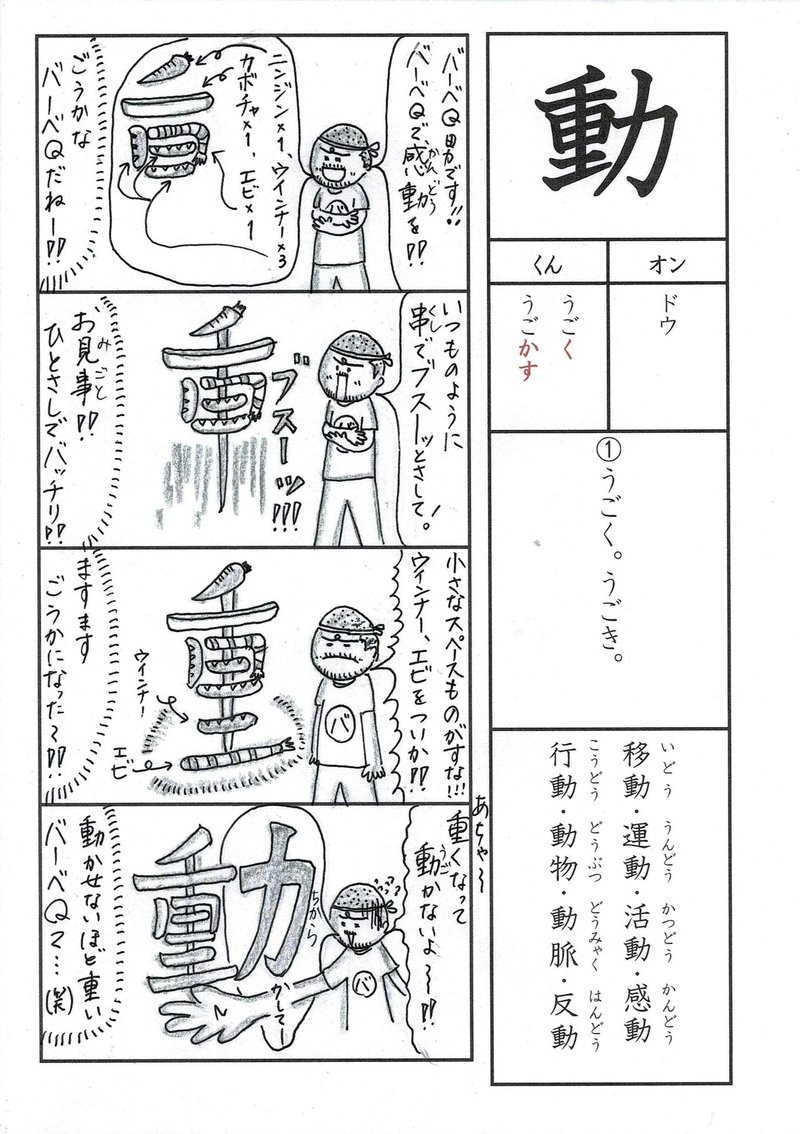 動
オン
くん
ドウ
うごく
うごかす
①うごく。うごき。
いどう うんどう かつどう かんどう
移動・運動・活動・感動
こうどう どうぶつ どうみゃく はんどう
行動・動物・動脈・反動
バーベQ男です!!
バーベQで、感動を!!
かんどう
ニンジン×1、ウインナー×3
カボチャ×1、エビ×1
ごうかな
バーベQだねー!!
バ
いつものように
串でブスーッとさして。
くし
ブスーッ!!!
お見事!!
みごと
ひとさしでバッチリ!!
バ
小さなスペースものがすな!!!
ウインナー、エビをついか!!
ウインナー
エビ
ますます
ごうかになった〜!!
バ
あちゃ〜
重くなって
動かないよ〜!!
うご
動
ちから
かしてー
バ
動かせないほど重い
バーベQって…(笑)